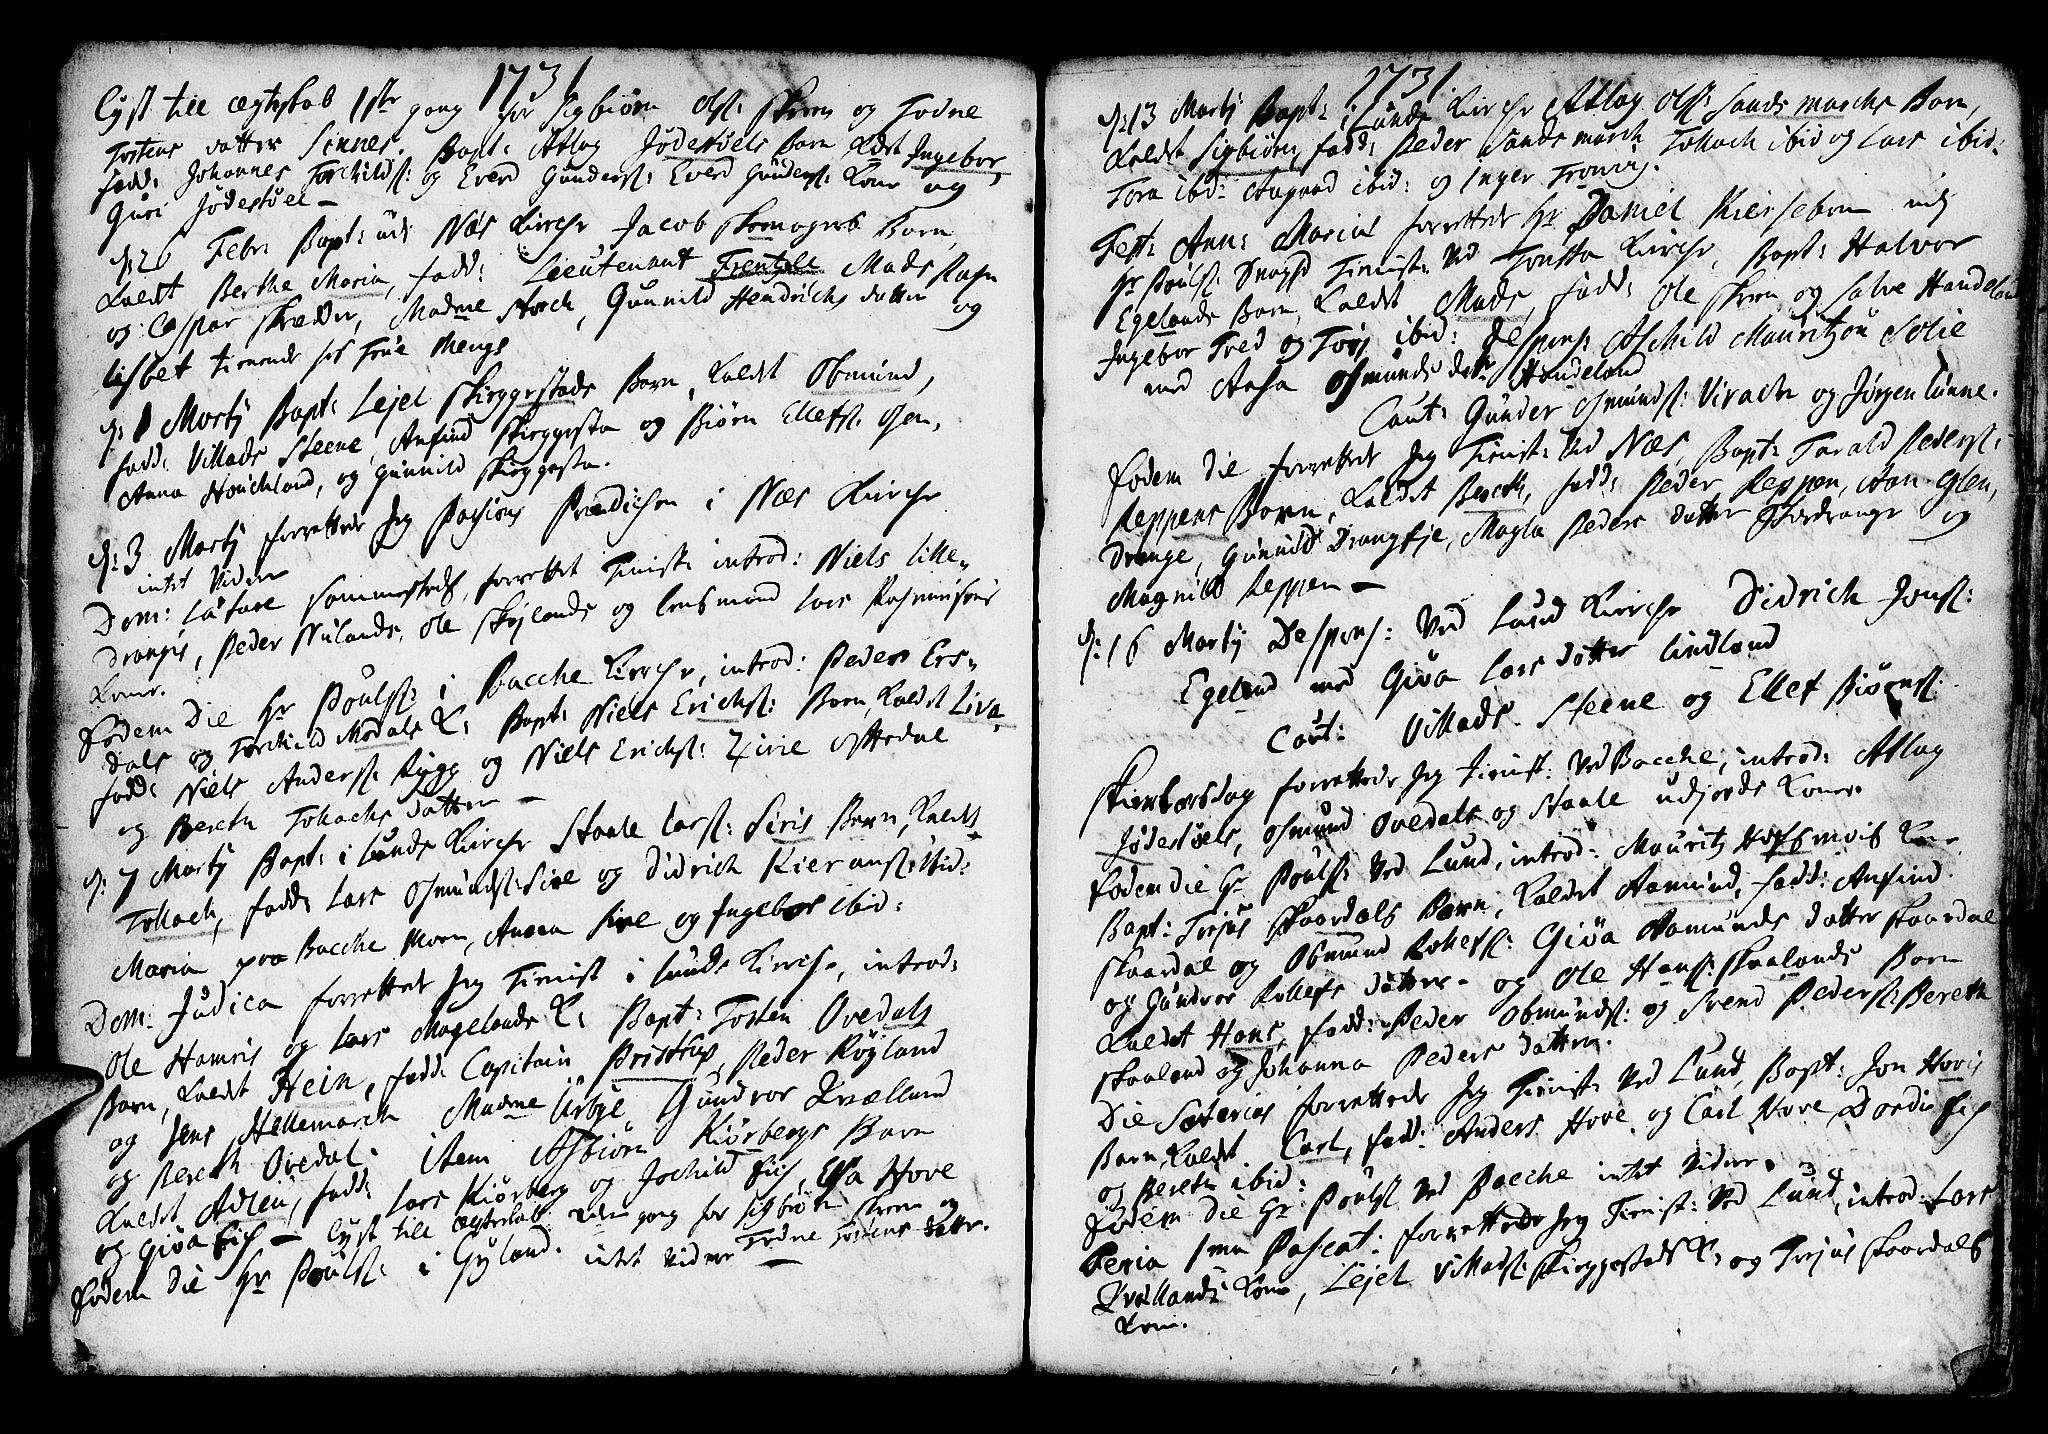 1731
Lyst till ægteskab 1ste gang for Sigbiørn Ols: Skren og Todne
Tostens datter Sinnes. Bapt: Atlag Jødestøels barn kaldt Ingebor,
fadd: Johannes Torchilds: og Everd Gunders: Everd Gunders: Kone og
Guri Jødestøel —
d: 26 Febr: Bapt: udi Næs Kirche Jacob Skomagers Barn
kaldt Berthe Maria, fadd: Lieutenant Frentzle Mads
og Caspar Skredder, Madme Storch, Gunnild Hendrichs datter og
Lisbet tienende hos Frue Mengs
d: 1 Martÿ Bapt: Lejel Skieggestads Barn, kaldt Obmund,
fadd: Villads Steene, Anfind Skieggesta og Biørn Ellefs: Osen,
Anna Houchland, og Gunnild Skieggesta.
d: 3 Martÿ forrettede Jeg Passions Prædichen i Næs Kirche
intet Videre
Dom: Lætare sammesteds, forrettet Tienist: introd: Niels Lille-
drangis, Peder Nulands, Ole Skøjlands og Lensmand Lars Rasmusens
Kone.
Eodem Die Hr Pouls: i Bacche Kirche, introd: Peder Ers-
dals og Torchild Modals K: Bapt: Niels Erichs: Barn, kaldt Liva,
fadd: Niels Anders: Rygg og Niels Erichs: Zirie Osthodne
og Bereth Tollachs datter —
d: 7 Martÿ Bapt: i Lunds Kirche Staale Lars: Siris Barn, kaldt
Tollach, fadd: Lars Osmunds: Sire og Didrich Kierans: ibid:
Maria paa Bacche Moen, Anna Sire og Ingebor ibid:
Dom: Judica forrettet Jeg Tienist i Lunds Kirche, introd:
Ole Hamris og Lars Mogelands K: Bapt: Tosten Ovedals
Barn, kaldt Hein, fadd: Capitain Pristrup, Peder Røyland
og Jens Hellemarch Madme Urbye Gundvor Qvælland
og Bereth Ovedal. Item Asbiørn Kiørbergs Barn
kaldt Adlen, fadd: Lars Kiørberg og Jochild Eich, Elsa Hove
og Giøa Eich — Lyst till ægteskab anden gang for Sigbiørn Skren og
Todne Tostens datter.
Eodem Die Hr Pouls: i Gyland. intet videre —
1731
d: 13 Martÿ Bapt: i Lunds Kirche Atlag Ols: Sandsmarchs Barn,
kaldet Sigbiørn, fadd: Peder Sandsmarch Tollach ibid og Lars ibid:
Tora ibid: Aagaad ibid: og Inger
Fest: Ann: Mariæ forrettede Hr Daniel Kiersebom med
Hr Pouls: Tienist: Ved Tonsta Kirche, Bapt: Halvor
Egelands Barn, kaldet Mads, fadd: Ole Skren og Salve Handeland
Ingebor Tved og Tøri ibid: Despens: Aschild Mauritzøn Solie
med Aasa Osmunds datter Haudeland
Caut: Gunder Osmunds: Virach og Jørgen Tunne.
Eodem Die forrettede Jeg Tienist: Ved Næs, Bapt: Tarald Peders:
Reppens Barn, kaldet Bereth, fadd: Peder Reppen, Aan Glen-
drange, Gunnild Drangtje, Magla Peders datter Hordrange og
Magnild Reppen —
d: 16 Martÿ Despens: Ved Lund Kirche Didrich Jons:
Egeland med Giøa Lars datter Lindland
Caut: Villads Steene og Ellef Biørns:
Skiertorsdag forrettede Jeg Tienist: Ved Bacche, introd: Atlag
Jødestøels, Osmund Ovedals og Staale udjords Koner.
Eodem die Hr Pouls: Ved Lund, introd: Mauritz Hofsmois Kone
Bapt: Terjus Skaardals Barn, kaldet Aamund, fadd: Anfind
Skaardal og Obmund Rollefs: Giøa Aamunds datter Skaardal
og Gundvor Rollefs datter — og Ole Hans: Skaalands Barn
kaldet Hans, fadd: Peder Obmunds: og Svend Peders: Bereth
Skaaland og Johanna Peders datter.
Die forrettede Jeg Tienist: Ved Lund, Bapt: Jon Hovis
Barn, kaldet Carl, fadd: Anders Hove, og Carl Hove, Dordis Eich
og Bereth ibid:
Eodem Die Hr Pouls: Ved Bacche intet videre.
Feria 1ma Paschat: forrettede Jeg Tienist: Ved Lund, introd: Lars
Qvællands Kone, Lejel Villads: Skieggestads K: og Terjus Skaardals
Kone.